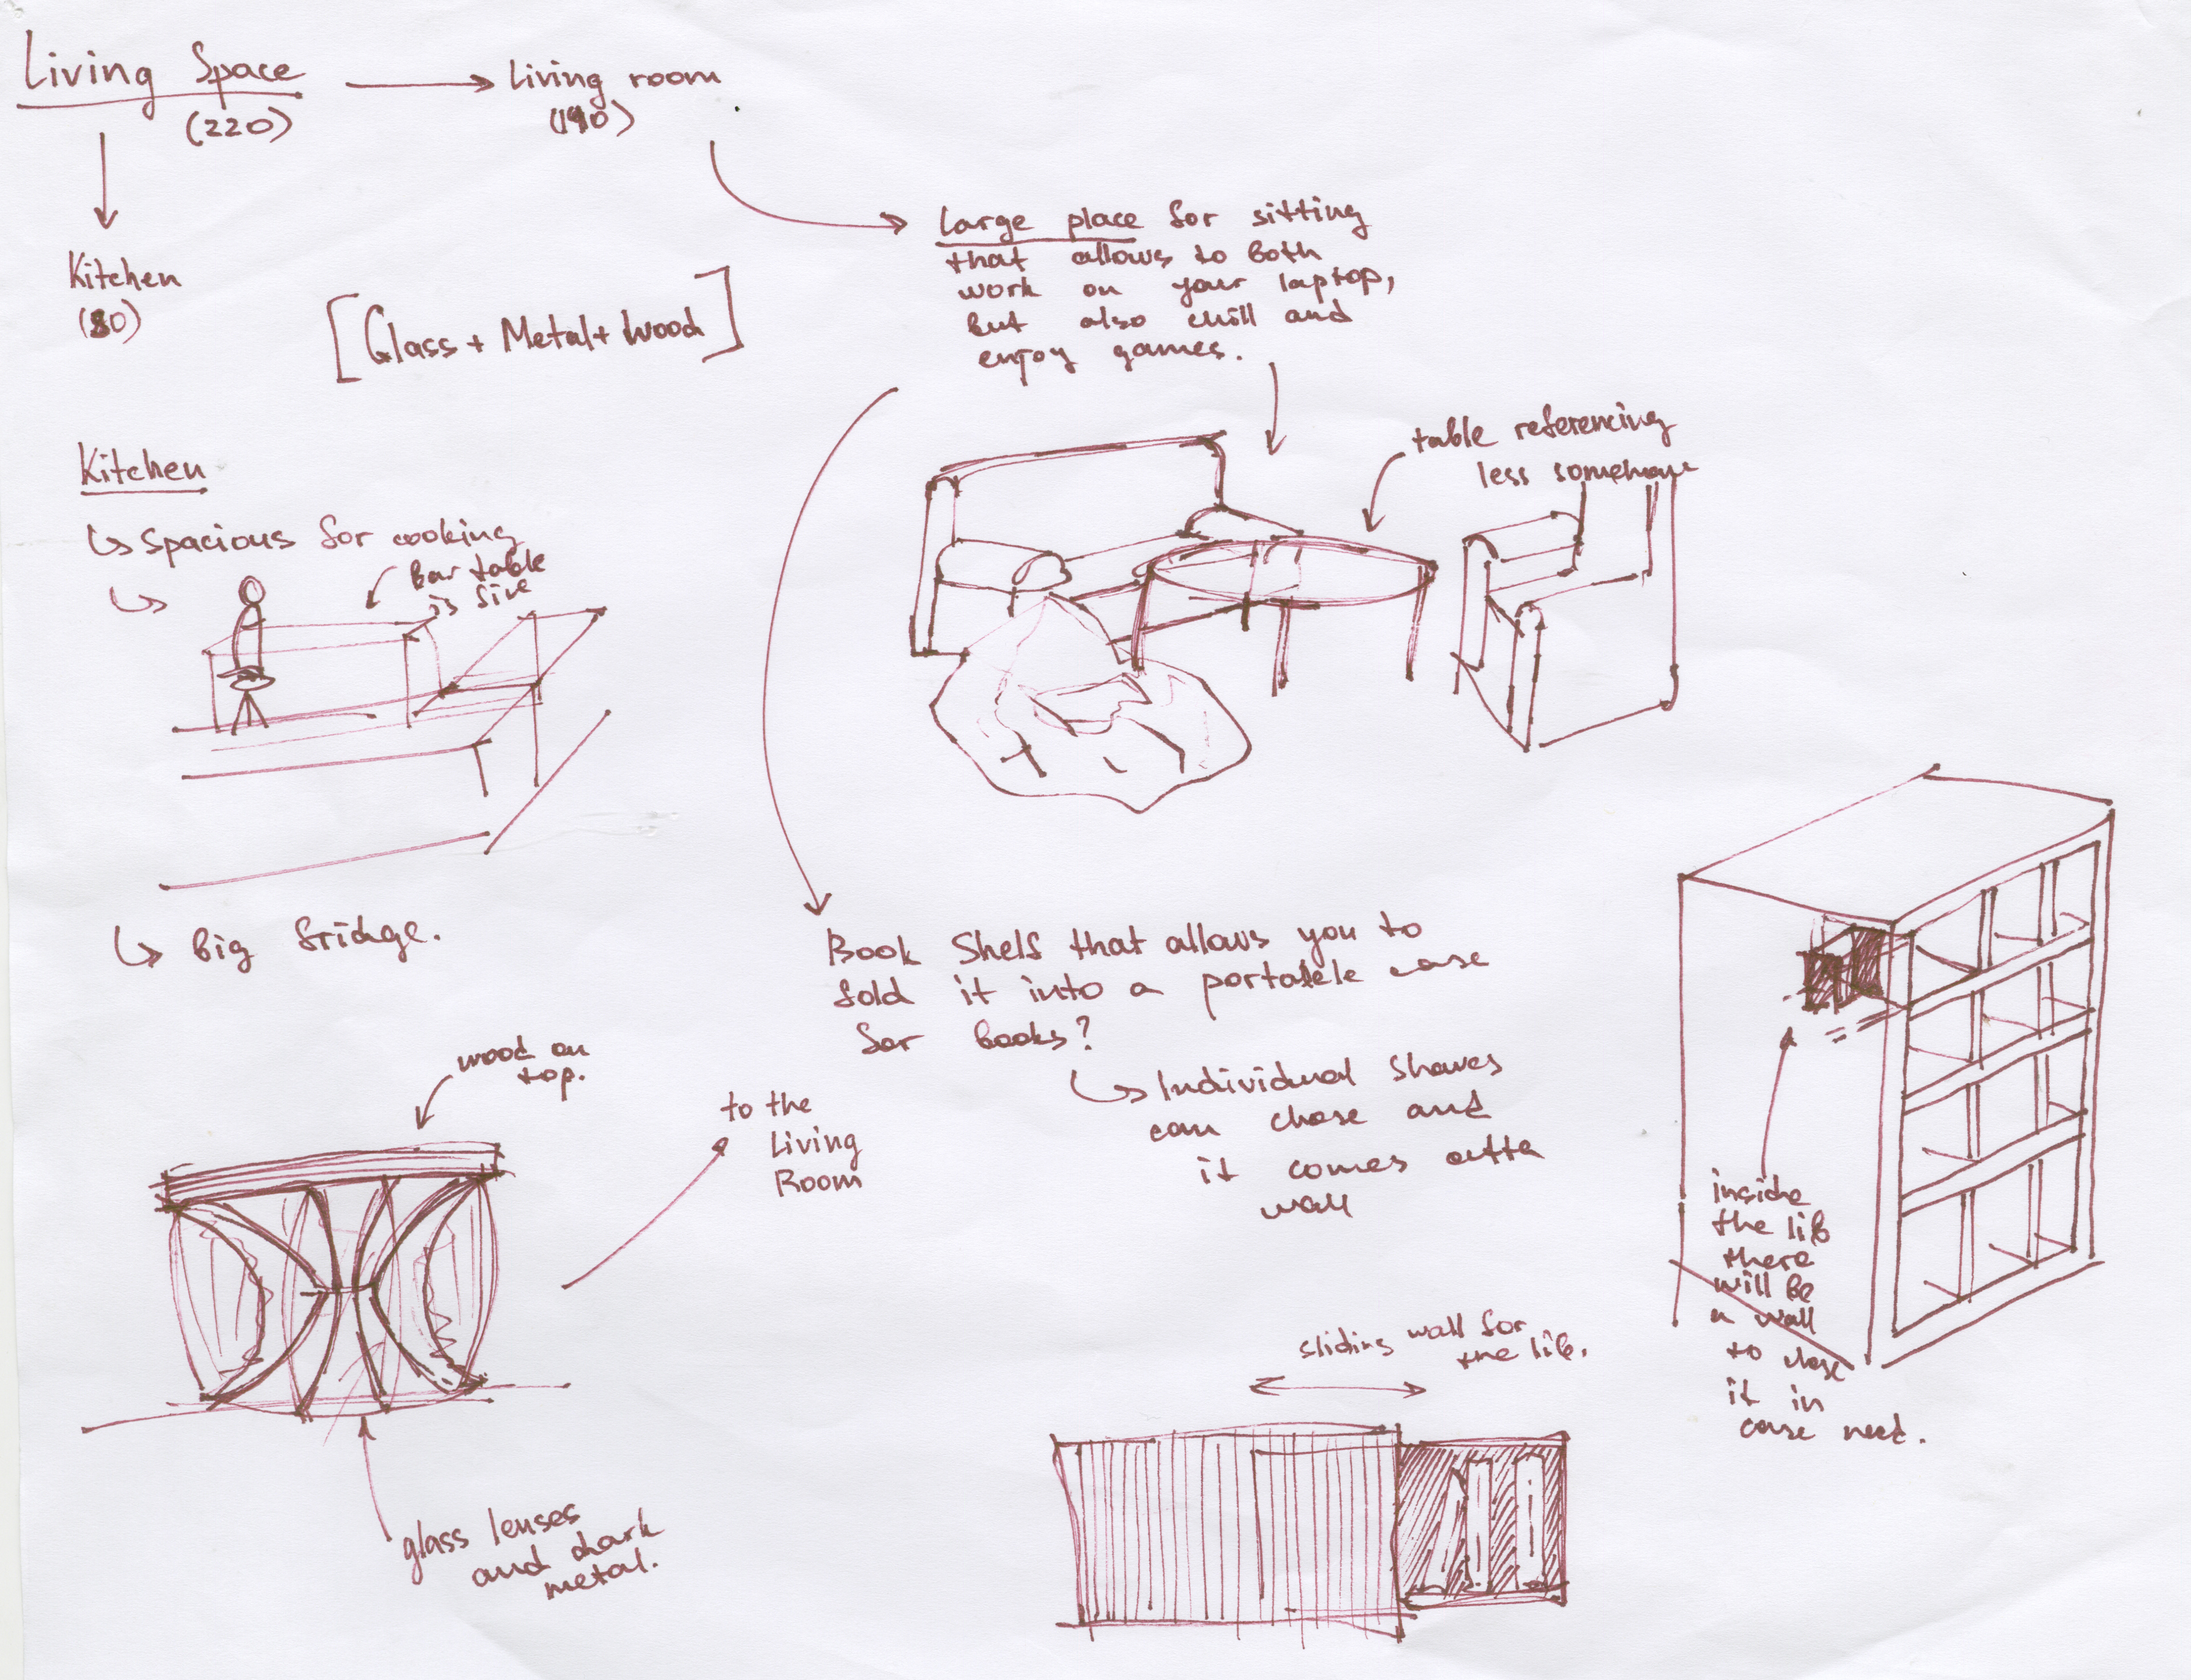 Living Space
(220)
Living room
(190)
Kitchen
(30)
[Glass + Metal + Wood]
Large place for sitting
that allows to both
work on your laptop,
but also chill and
enjoy games.
table referencing
less somehow
Kitchen
spacious for cooking
Bar table
is fine
Big fridge.
Book Shelf that allows you to
fold it into a portable case
for books?
Individual shaves
can close and
it comes outta
wall
wood on
top.
to the
Living
Room
glass lenses
and dark
metal.
sliding wall for
the lib.
inside
the lib
there
will be
a wall
to close
it in
case need.